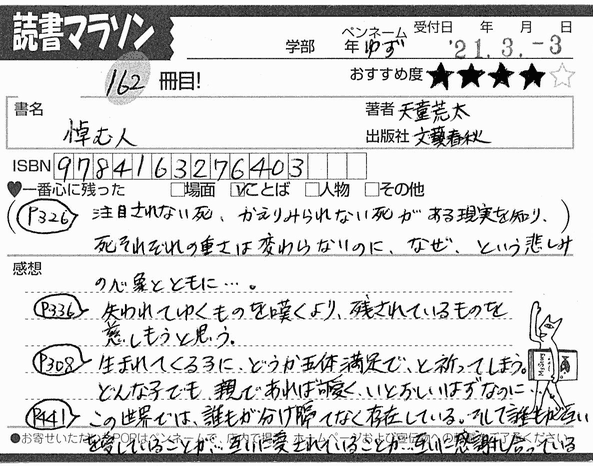 読書マラソン
学部 年 ペンネーム ゆず 受付日 年 月 日 '21.3.-3
162 冊目! おすすめ度 ★★★★☆
書名 著者 天童荒太
悼む人 出版社 文藝春秋
ISBN 9784163276403
♥一番心に残った □場面 ☑ことば □人物 □その他
(P326) 注目されない死、かえりみられない死がある現実を知り、
死それぞれの重さは変わらないのに、なぜ、という悲しみ
感想
の心象とともに…。
P336 失われてゆくものを嘆くより、残されているものを
慈しもうと思う。
P308 生まれてくる子に、どうか五体満足で、と祈ってしまう。
どんな子でも、親であれば等しく、いとおしいはずなのに…
P441 この世界では、誰もが分け隔てなく存在している。そして誰もが互い
●お寄せいただいたPOPはペンネームで、店内で掲 ホームページおよび ご了承ください
を愛していることが…互いに愛されていることが…互いに感謝し合っている